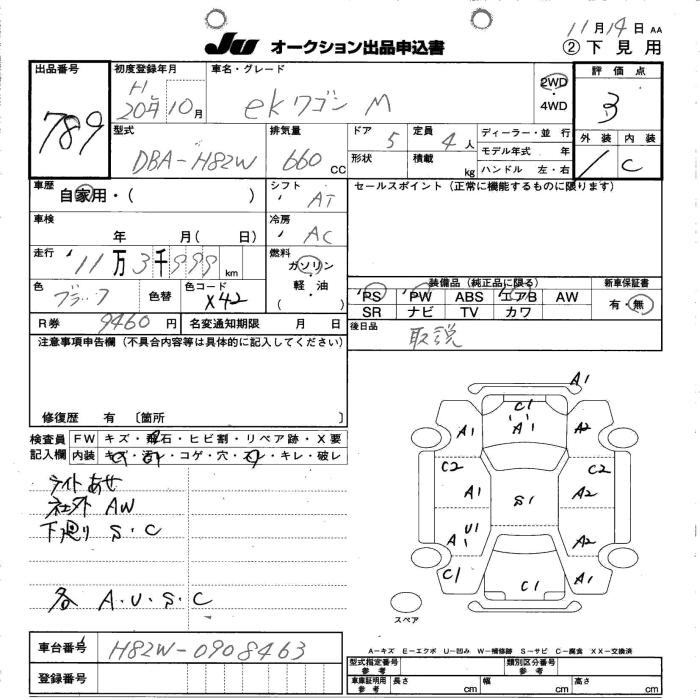 JU オークション出品申込書
11月14日 AA
②下見用
出品番号 789
初度登録年月 H 20年10月
車名・グレード ekワゴン M
2WD・4WD
評価点 3
外装 内装 C
型式 DBA-H82W
排気量 660 CC
ドア 5
定員 4人
形状
積載 kg
ディーラー・並行
モデル年式 年
ハンドル 左・右
車歴 自家用・( )
シフト AT
セールスポイント (正常に機能するものに限ります)
車検 年 月( 日)
冷房 AC
走行 11万3千999km
燃料 ガソリン・軽油・( )
色 ブラック 色替
色コード X42
装備品(純正品に限る)
PS PW ABS エアB AW
SR ナビ TV カワ
新車保証書 有・無
R券 9460円
名変通知期限 月 日
後日品 取説
注意事項申告欄 (不具合内容等は具体的に記入してください)
修復歴 有 〔箇所 〕
検査員記入欄
FW キズ・飛石・ヒビ割・リペア跡・X要
内装 キズ・汚レ・コゲ・穴・スレ・キレ・破レ
ライトあせ
社外 AW
下廻り S.C
各 A.U.S.C
A1
C1
A1
A1
A2
C2
C2
A1
A2
S1
U1
A1
A2
C1
C1
A1
スペア
車台番号 H82W-0908463
登録番号
A-キズ E-エクボ U-凹み W-補修跡 S-サビ C-腐食 XX-交換済
型式指定番号 参考
類別区分番号 参考
車庫証明用 参考
長さ cm 幅 cm 高さ cm